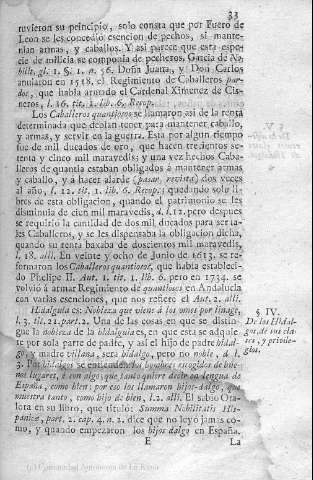 33
tuvieron su principio, solo consta que por Fuero de
Leon se les concedió esencion de pechos, si mante-
nian armas, y caballos. Y asi parece que esta espe-
cie de milicia se componia de pecheros. Garcia de No-
bilit. gl. 1. §. 1. n. 56. Doña Juana, y Don Carlos
anularon en 1518. el Regimiento de Caballeros par-
dos, que habia armado el Cardenal Ximenez de Cis-
neros, l. 16. tit. 1. lib. 6. Recop.
Los Caballeros quantiosos se llamaron asi de la renta
determinada que debian tener para mantener caballo,
y armas, y servir en la guerra. Esta por algun tiempo
fue de mil ducados de oro, que hacen trecientos se-
tenta y cinco mil maravedis; y una vez hechos Caba-
lleros de quantia estaban obligados à mantener armas
y caballo, y à hacer alarde (pasar revista) dos veces
al año, l. 12. tit. 1. lib. 6. Recop.: quedando solo li-
bres de esta obligacion, quando el patrimonio se les
disminuía de cien mil maravedis, d. l. 12. pero despues
se requirió la cantidad de dos mil ducados para ser ta-
les Caballeros, y se les dispensaba la obligacion dicha,
quando su renta baxaba de doscientos mil maravedis,
l. 18. alli. En veinte y ocho de Junio de 1613. se re-
formaron los Caballeros quantiosos, que habia estableci-
do Phelipe II. Aut. 1. tit. 1. lib. 6. pero en 1734. se
volvió à armar Regimiento de quantiosos en Andalucía
con varias esenciones, que nos refiere el Aut. 2. alli.
Hidalguía es: Nobleza que viene à los omes por linage,
l. 3. tit. 21. part. 2. Una de las cosas en que se distin-
gue la nobleza de la hidalguía es, en que esta se adquie-
re por sola parte de padre, y asi el hijo de padre hidal-
go, y madre villana, será hidalgo, pero no noble, d. l.
3. Por hidalgos se entienden los hombres escogidos de bue-
nos lugares, è con algo, que tanto quiere decir en lengua de
España, como bien; por eso los llamaron hijos-dalgo, que
muestra tanto, como hijo de bien, l. 2. alli. El sabio Ota-
lora en su libro, que tituló: Summa Nobilitatis His-
panicæ, part. 2. cap. 4. n. 2. dice que no leyó jamas co-
mo, y quando empezaron los hijos dalgo en España.
E
La
§ IV.
De los Hidal-
gos, de sus cla-
ses, y privile-
gios.
(c) Comunidad Autónoma de La Rioja